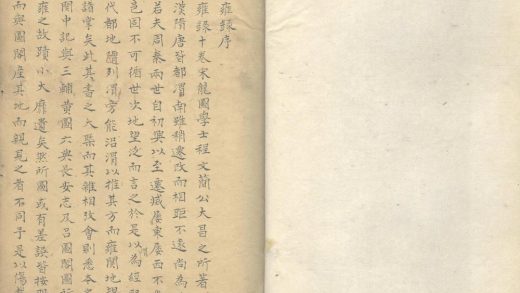 雍錄序
雍錄十卷宋龍圖學士程文簡公大昌之所著
漢隋唐皆都渭南雖稍遷改而相距不遠尚為
若夫周秦兩世自初興以至遷滅屢東屢西不
邑固不可循世次地望泛而言之於是以渭為經
代都地隨列渭旁能沿渭以推其方而雍關地
諸掌矣此其書之大槩而其雜相攷會則悉本之
關中記與三輔黃圖六典長安志及呂圖閣圖
雍之故蹟小大靡遺矣然所圖或有差誤皆按
而與圖閣産其地而親見之者不同予是以傷